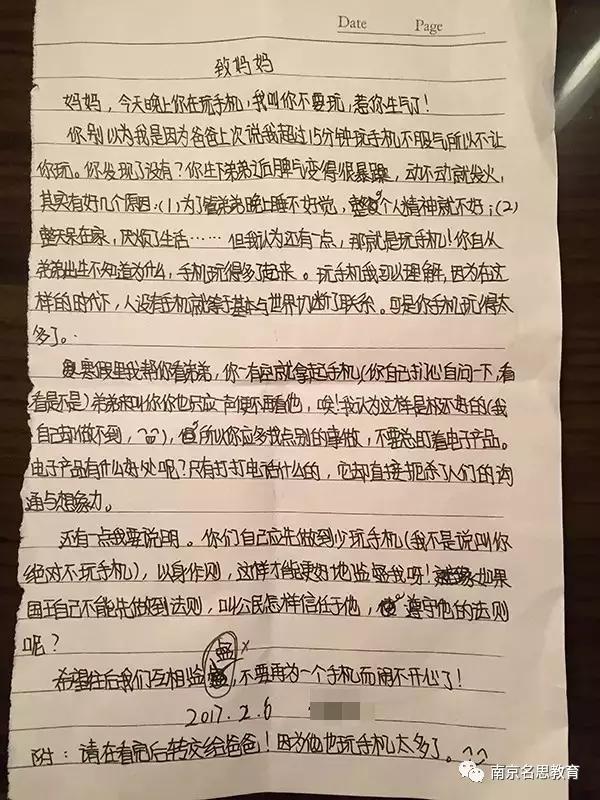 Date Page
致妈妈
妈妈，今天晚上你在玩手机，我叫你不要玩，惹你生气了！
你别以为我是因为爸爸上次说我超过15分钟玩手机不服气所以不让
你玩。你发现了没有？你生下弟弟近脾气变得很暴躁，动不动就发火，
其实有好几个原因：（1）为了管弟弟晚上睡不好觉，整个人精神就不好；（2）
整天呆在家，厌烦了生活……但我认为还有一点，那就是玩手机！你自从
弟弟出生不知道为什么，手机玩得多了起来。玩手机我可以理解，因为在这
样的时代下，人没有手机就等于基本与世界切断了联系。可是你手机玩得太
多了。
寒假里我帮你看弟弟，你一有空就拿起手机（你自己扪心自问一下，看
看是不是）弟弟来叫你你也只应一声便不再看他，唉！我认为这样是极不好的（我
自己却做不到，），所以你应多找点别的事做，不要总盯着电子产品。
电子产品有什么好处呢？只有打打电话什么的，它却直接扼杀了人们的沟
通与想象力。
还有一点我要说明。你们自己应先做到少玩手机（我不是说叫你
绝对不玩手机），以身作则，这样才能更好地监督我呀！如果
国王自己不能先做到法则，叫公民怎样信任于他，遵守他的法则
呢？
希望往后我们互相监督，不要再为一个手机而闹不开心了！
2017.2.6
附：请在看完后转交给爸爸！因为他也玩手机太多了。^^
南京名思教育